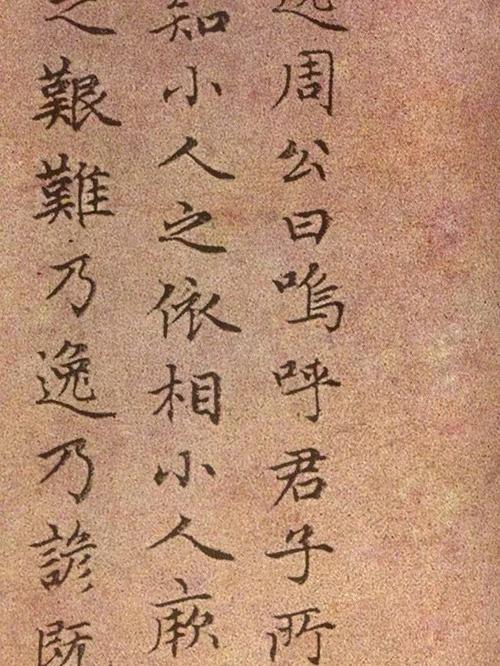 逸周公曰嗚呼君子所
知小人之依相小人厥
之艱難乃逸乃諺既